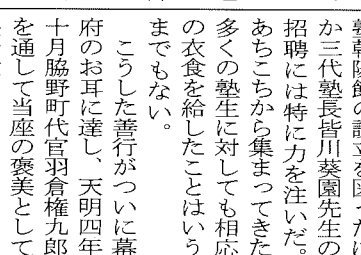 塾朝陽館の設立を図ったほ
か三代塾長皆川葵園先生の
招聘には特に力を注いだ。
あちこちから集まってきた
多くの塾生に対しても相応
の衣食を給したことはいう
までもない。
こうした善行がついに幕
府のお耳に達し、天明四年
十月脇野町代官羽倉権九郎
を通して当座の褒美として